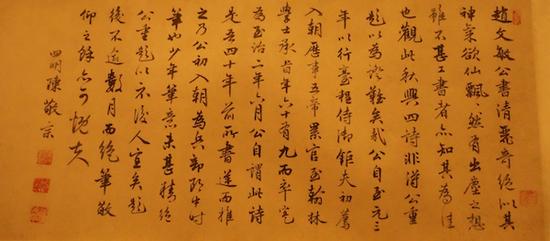 趙文敏公書清飛奇絕以其
神氣欲仙飄然有出塵之想
雖不甚工書者亦知其為佳
也觀此秋興四詩非得公重
題以為證難矣哉公自至元三
年以行臺程侍御鉅夫初薦
入朝歷事五帝累官至翰林
學士承旨年六十有九而卒寔
為至治二年六月公自謂此詩
是吾四十年前所書逆而推
之乃公初入朝為兵部郎中時
筆也少年筆意未甚精絕
公重題以示後人宜矣題
後不逾數月而絕筆敬
仰之餘亦可慨夫
四明陳敬宗